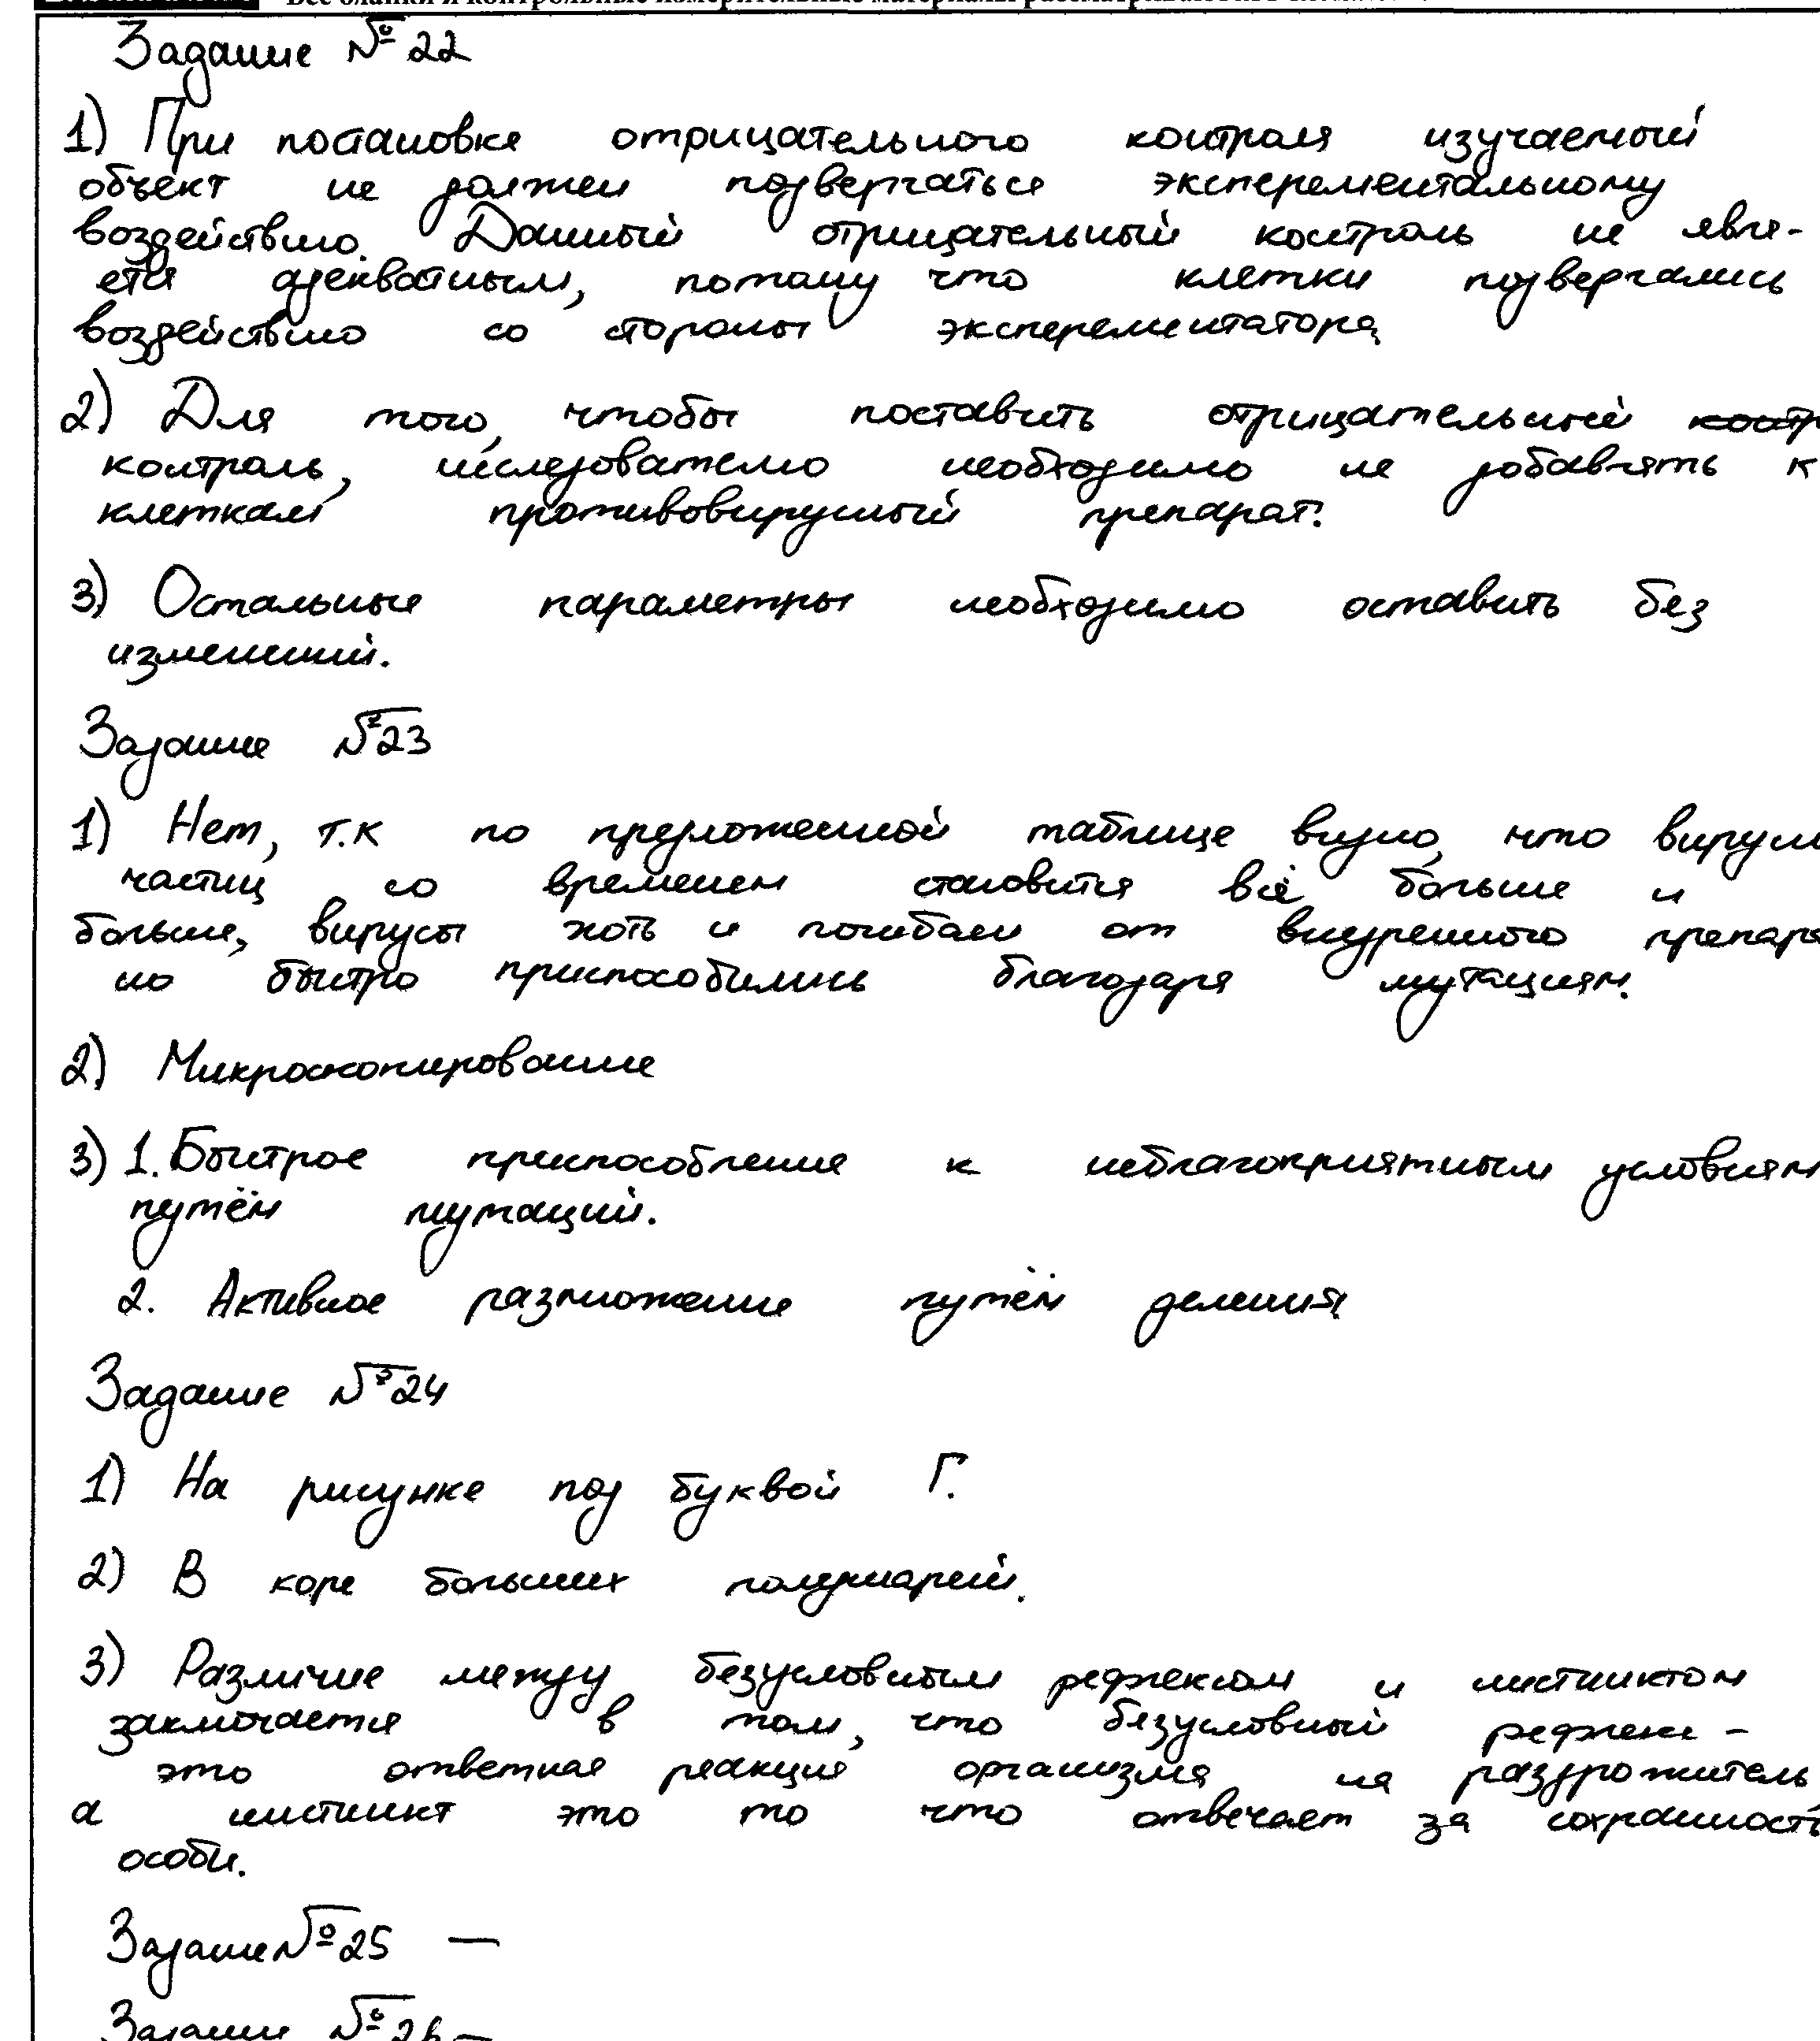 Все бланки и контрольные измерительные материалы рассматриваются в комплекте
Задание № 22
1) При постановке отрицательного контроля изучаемый
объект не должен подвергаться эксперементальному
воздействию. Данный отрицательный контроль не явля-
ется адекватным, потому что клетки подвергались
воздействию со стороны эксперементатора
2) Для того, чтобы поставить отрицательный контр
контроль, исследователю необходимо не добавлять к
клеткам противовирусный препарат.
3) Остальные параметры необходимо оставить без
изменений.
Задание №23
1) Нет, т.к по предложенной таблице видно, что вирусн
частиц со временем становится всё больше и
больше, вирусы хоть и погибали от внедренного препара
но быстро приспособились благодаря мутациям.
2) Микроскопирование
3) 1. Быстрое приспособление к неблагоприятным условиям
путём мутаций.
2. Активное размножение путём деления
Задание №24
1) На рисунке под буквой Г.
2) В коре больших полушарий.
3) Различие между безусловным рефлексом и инстинктом
заключается в том, что безусловный рефлекс -
это ответная реакция организма на раздрожитель,
а инстинкт это то что отвечает за сохранность
особи.
Задание №25 —
Задание №26 —